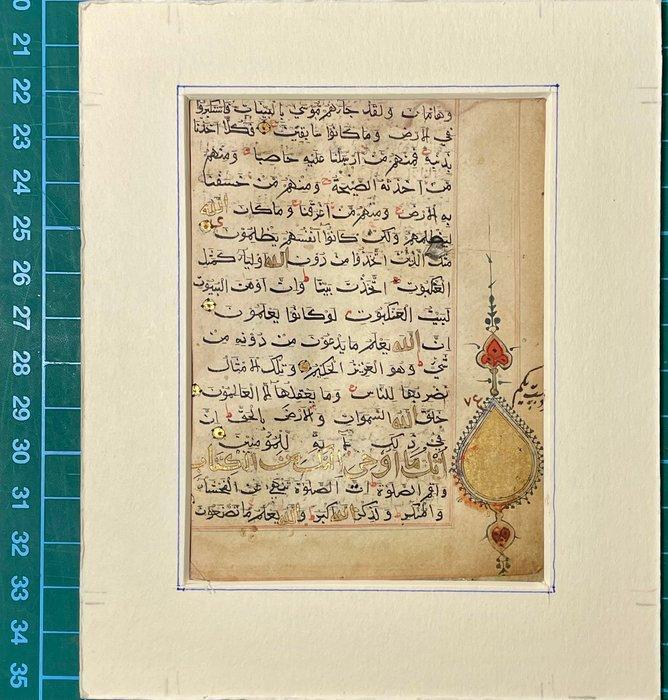 وهامان ولقد جاءهم موسى بالبينات فاستكبروا
في الارض وما كانوا سابقين فكلا اخذنا
بذنبه فمنهم من ارسلنا عليه حاصبا ومنهم
من اخذته الصيحة ومنهم من خسفنا
به الارض ومنهم من اغرقنا وما كان الله
ليظلمهم ولكن كانوا انفسهم يظلمون
مثل الذين اتخذوا من دون الله اولياء كمثل
العنكبوت اتخذت بيتا وان اوهن البيوت
لبيت العنكبوت لو كانوا يعلمون
ان الله يعلم ما يدعون من دونه من
شيء وهو العزيز الحكيم وتلك الامثال
نضربها للناس وما يعقلها الا العالمون
خلق الله السموات والارض بالحق ان
في ذلك لآية للمؤمنين
اتل ما اوحي اليك من الكتاب
واقم الصلوة ان الصلوة تنهى عن الفحشاء
والمنكر ولذكر الله اكبر والله يعلم ما تصنعون
21
22
23
24
25
26
27
28
29
30
31
32
33
34
35